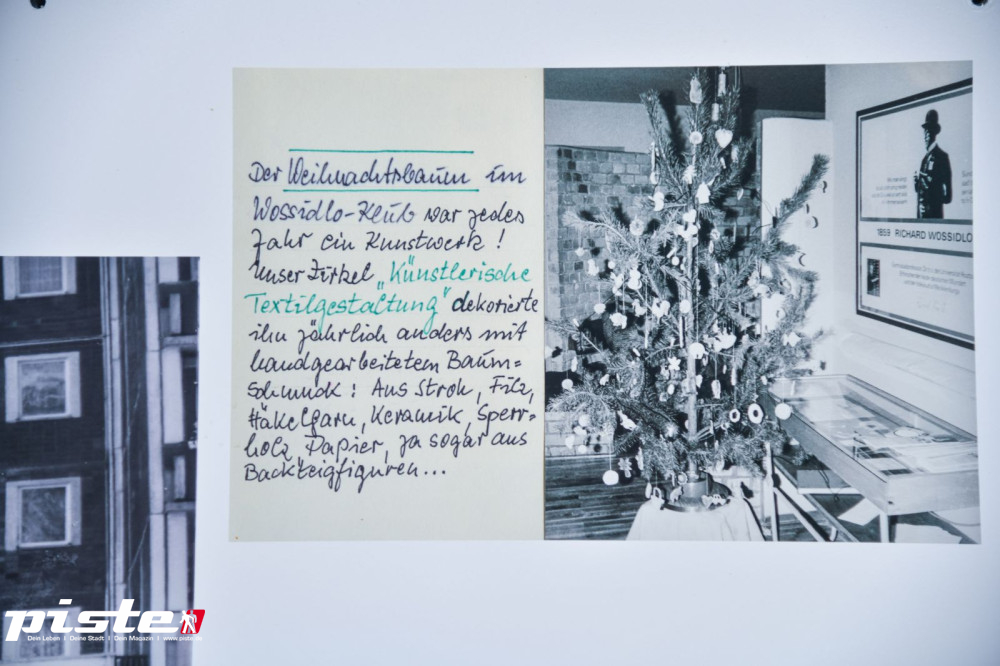 Der Weihnachtsbaum im
Wossidlo-Klub war jedes
Jahr ein Kunstwerk!
Unser Zirkel „Künstlerische
Textilgestaltung" dekorierte
ihn jährlich anders mit
handgearbeitetem Baum=
schmuck: Aus Stroh, Filz,
Häkelgarn, Keramik, Sperr=
holz, Papier, ja sogar aus
Backteigfiguren...
1859 RICHARD WOSSIDLO
piste
Dein Leben I Deine Stadt I Dein Magazin I www.piste.de